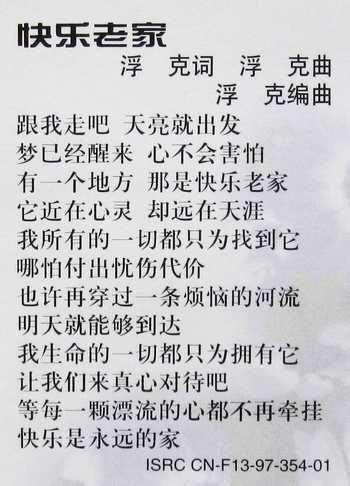 快乐老家
浮 克词 浮 克曲
浮 克编曲
跟我走吧 天亮就出发
梦已经醒来 心不会害怕
有一个地方 那是快乐老家
它近在心灵 却远在天涯
我所有的一切都只为找到它
哪怕付出忧伤代价
也许再穿过一条烦恼的河流
明天就能够到达
我生命的一切都只为拥有它
让我们来真心对待吧
等每一颗漂流的心都不再牵挂
快乐是永远的家
ISRC CN-F13-97-354-01